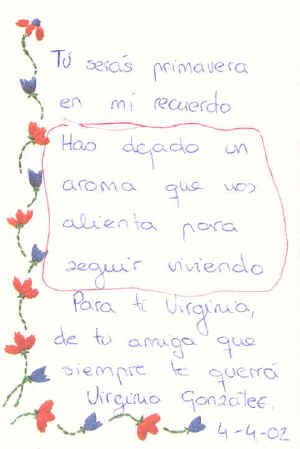 Tú serás primavera
en mi recuerdo
Has dejado un
aroma que nos
alienta para
seguir viviendo
Para ti Virginia,
de tu amiga que
siempre te querrá
Virginia González.
4-4-02